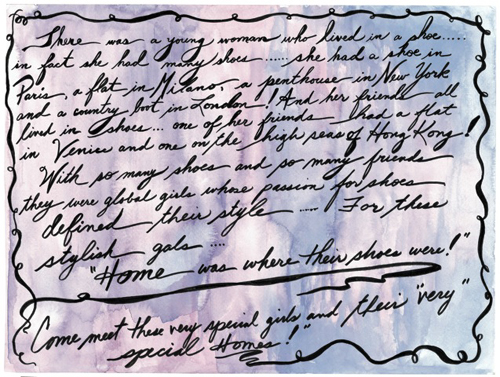 There was a young woman who lived in a shoe.....
in fact she had many shoes ..... she had a shoe in
Paris, a flat in Milano, a penthouse in New York
and a country boot in London! And her friends all
lived in shoes... one of her friends had a flat
in Venice and one on the high seas of Hong Kong!
With so many shoes and so many friends
they were global girls whose passion for shoes
defined their style ..... For these
stylish gals ....
"Home was where their shoes were!"
Come meet these very special girls and their "very"
special Homes!"